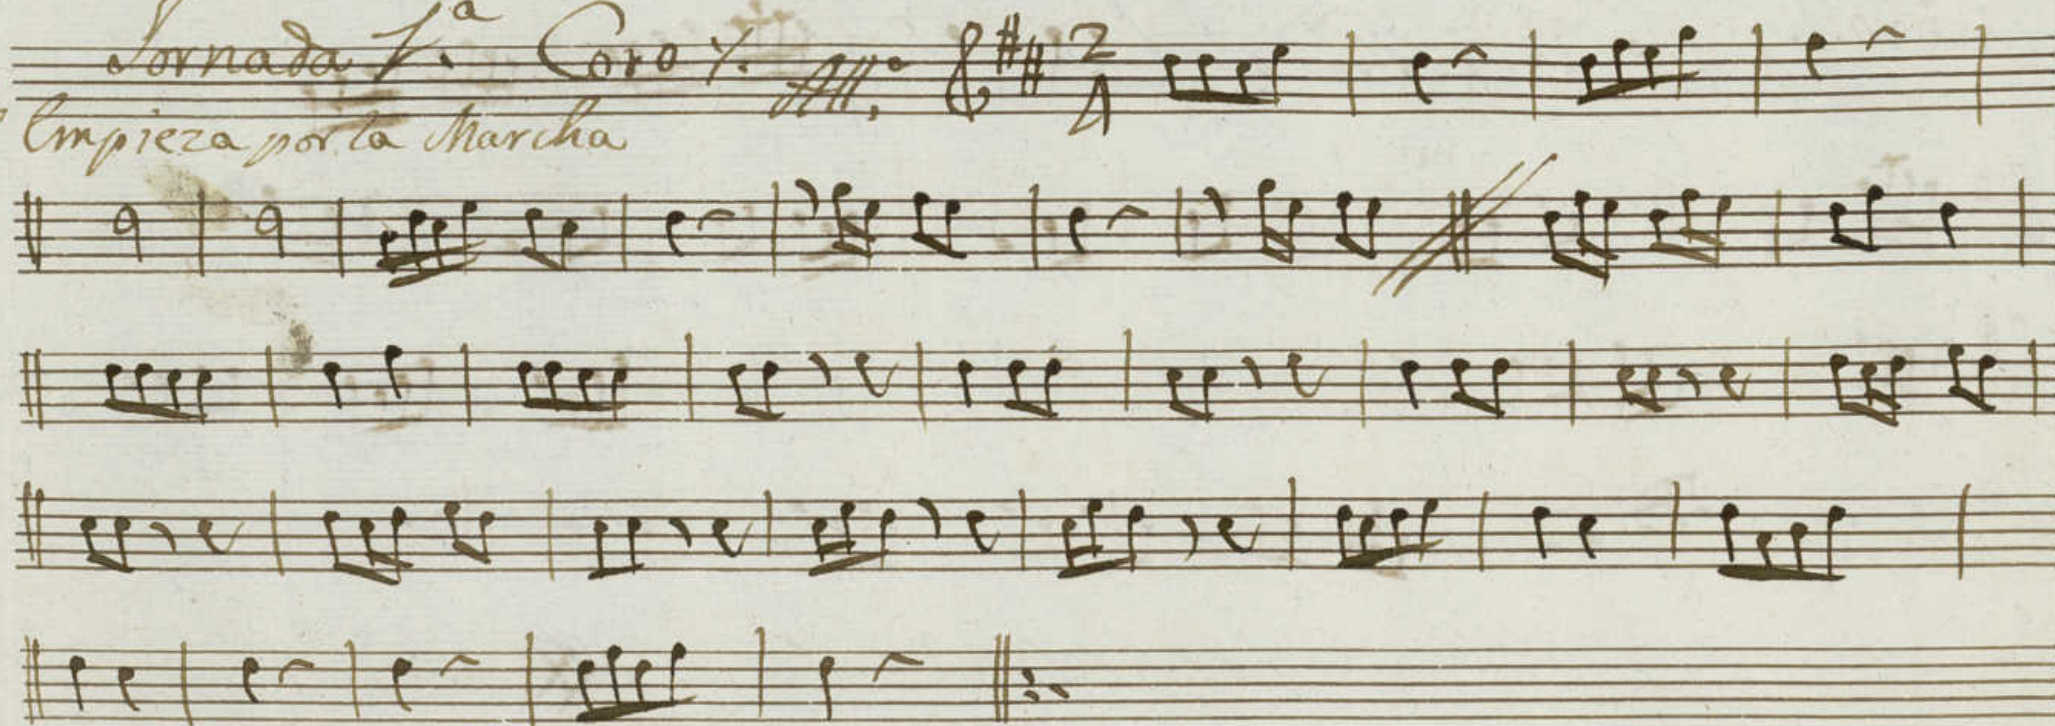 Jornada 1.ª Coro %. All.º 2/4
Empieza por la Marcha